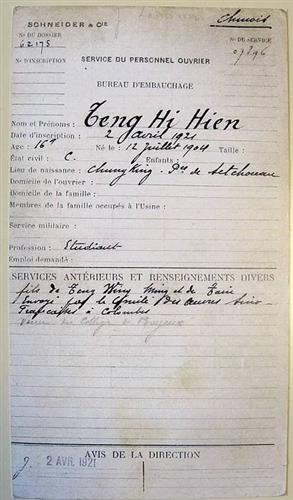 Chinois
SCHNEIDER & Cie
No DU DOSSIER
No DU SERVICE
62175
07896
No D'INSCRIPTION
SERVICE DU PERSONNEL OUVRIER
BUREAU D'EMBAUCHAGE
Nom et Prénoms : Teng Hi Hien
Date d'inscription : 2 avril 1921
Age : 16 Né le : 12 juillet 1904 Taille :
État civil : C. Enfants :
Lieu de naissance : Chung King. Pce de Setchouan
Domicile de l'ouvrier :
Domicile de la famille :
Membres de la famille occupés à l'Usine :
Service militaire :
Profession : Etudiant
Emploi demandé :
SERVICES ANTÉRIEURS ET RENSEIGNEMENTS DIVERS
fils de Teng Wen Ming et de
Envoyé par le Comité des Œuvres Sino-
Françaises à Colombes
Venu du Collège de Bayeux
AVIS DE LA DIRECTION
2 AVR. 1921